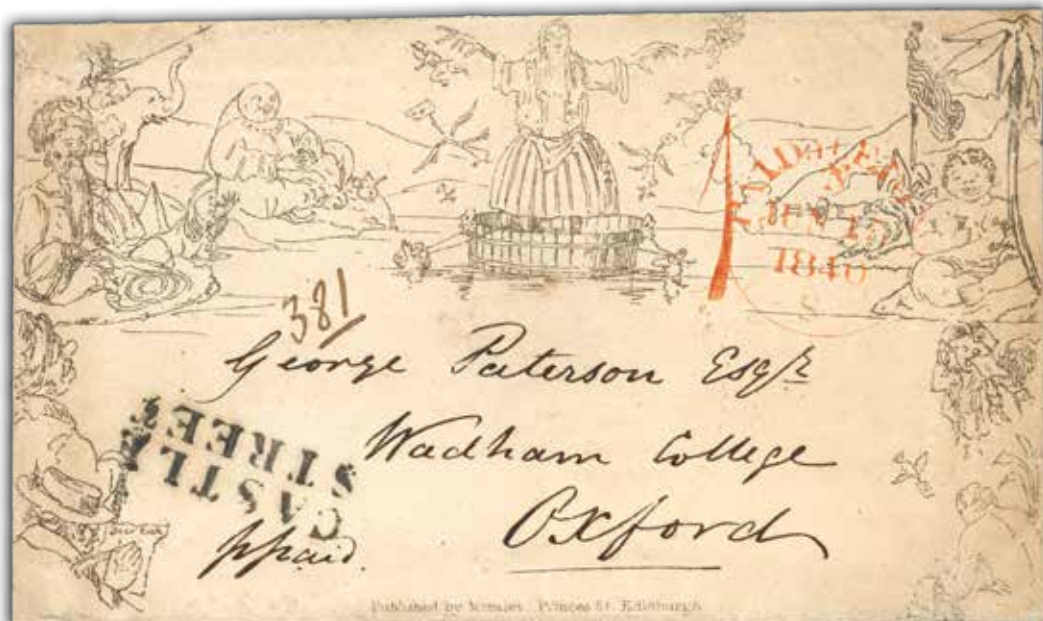 PAID
JUN
1840
S
381
George Paterson Esqr
Wadham College
Oxford
CASTLE
STREET
ppaid.
Published by Menzies. Princes St. Edinburgh